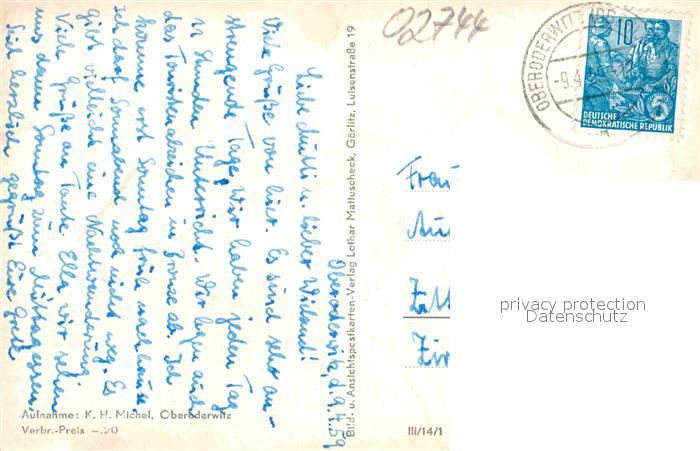 02744
OBERODERWITZ
-9.4.
10
5
DEUTSCHE
DEMOKRATISCHE REPUBLIK
Oberoderwitz, d. 9.4.59
Liebe Mutti u. lieber Wieland!
Viele Grüße von hier. Es sind sehr an-
strengende Tage. Wir haben jeden Tag
12 Stunden Unterricht. Wir legen auch
das Touristenabzeichen in Bronze ab. Ich
komme erst Sonntag früh nachhause.
Ich darf Sonnabend noch nicht weg. Es
gibt vielleicht eine Nachtwanderung.
Viele Grüße an Tante Ella wir sehen
uns dann Sonntag zum Mittagessen.
Seid herzlich gegrüßt Eure
Bild- u. Ansichtspostkarten-Verlag Lothar Mattuscheck, Görlitz, Luisenstraße 19
Frau
Zitt
privacy protection
Datenschutz
Aufnahme: K. H. Michel, Oberoderwitz
Verbr.-Preis -.20
III/14/1